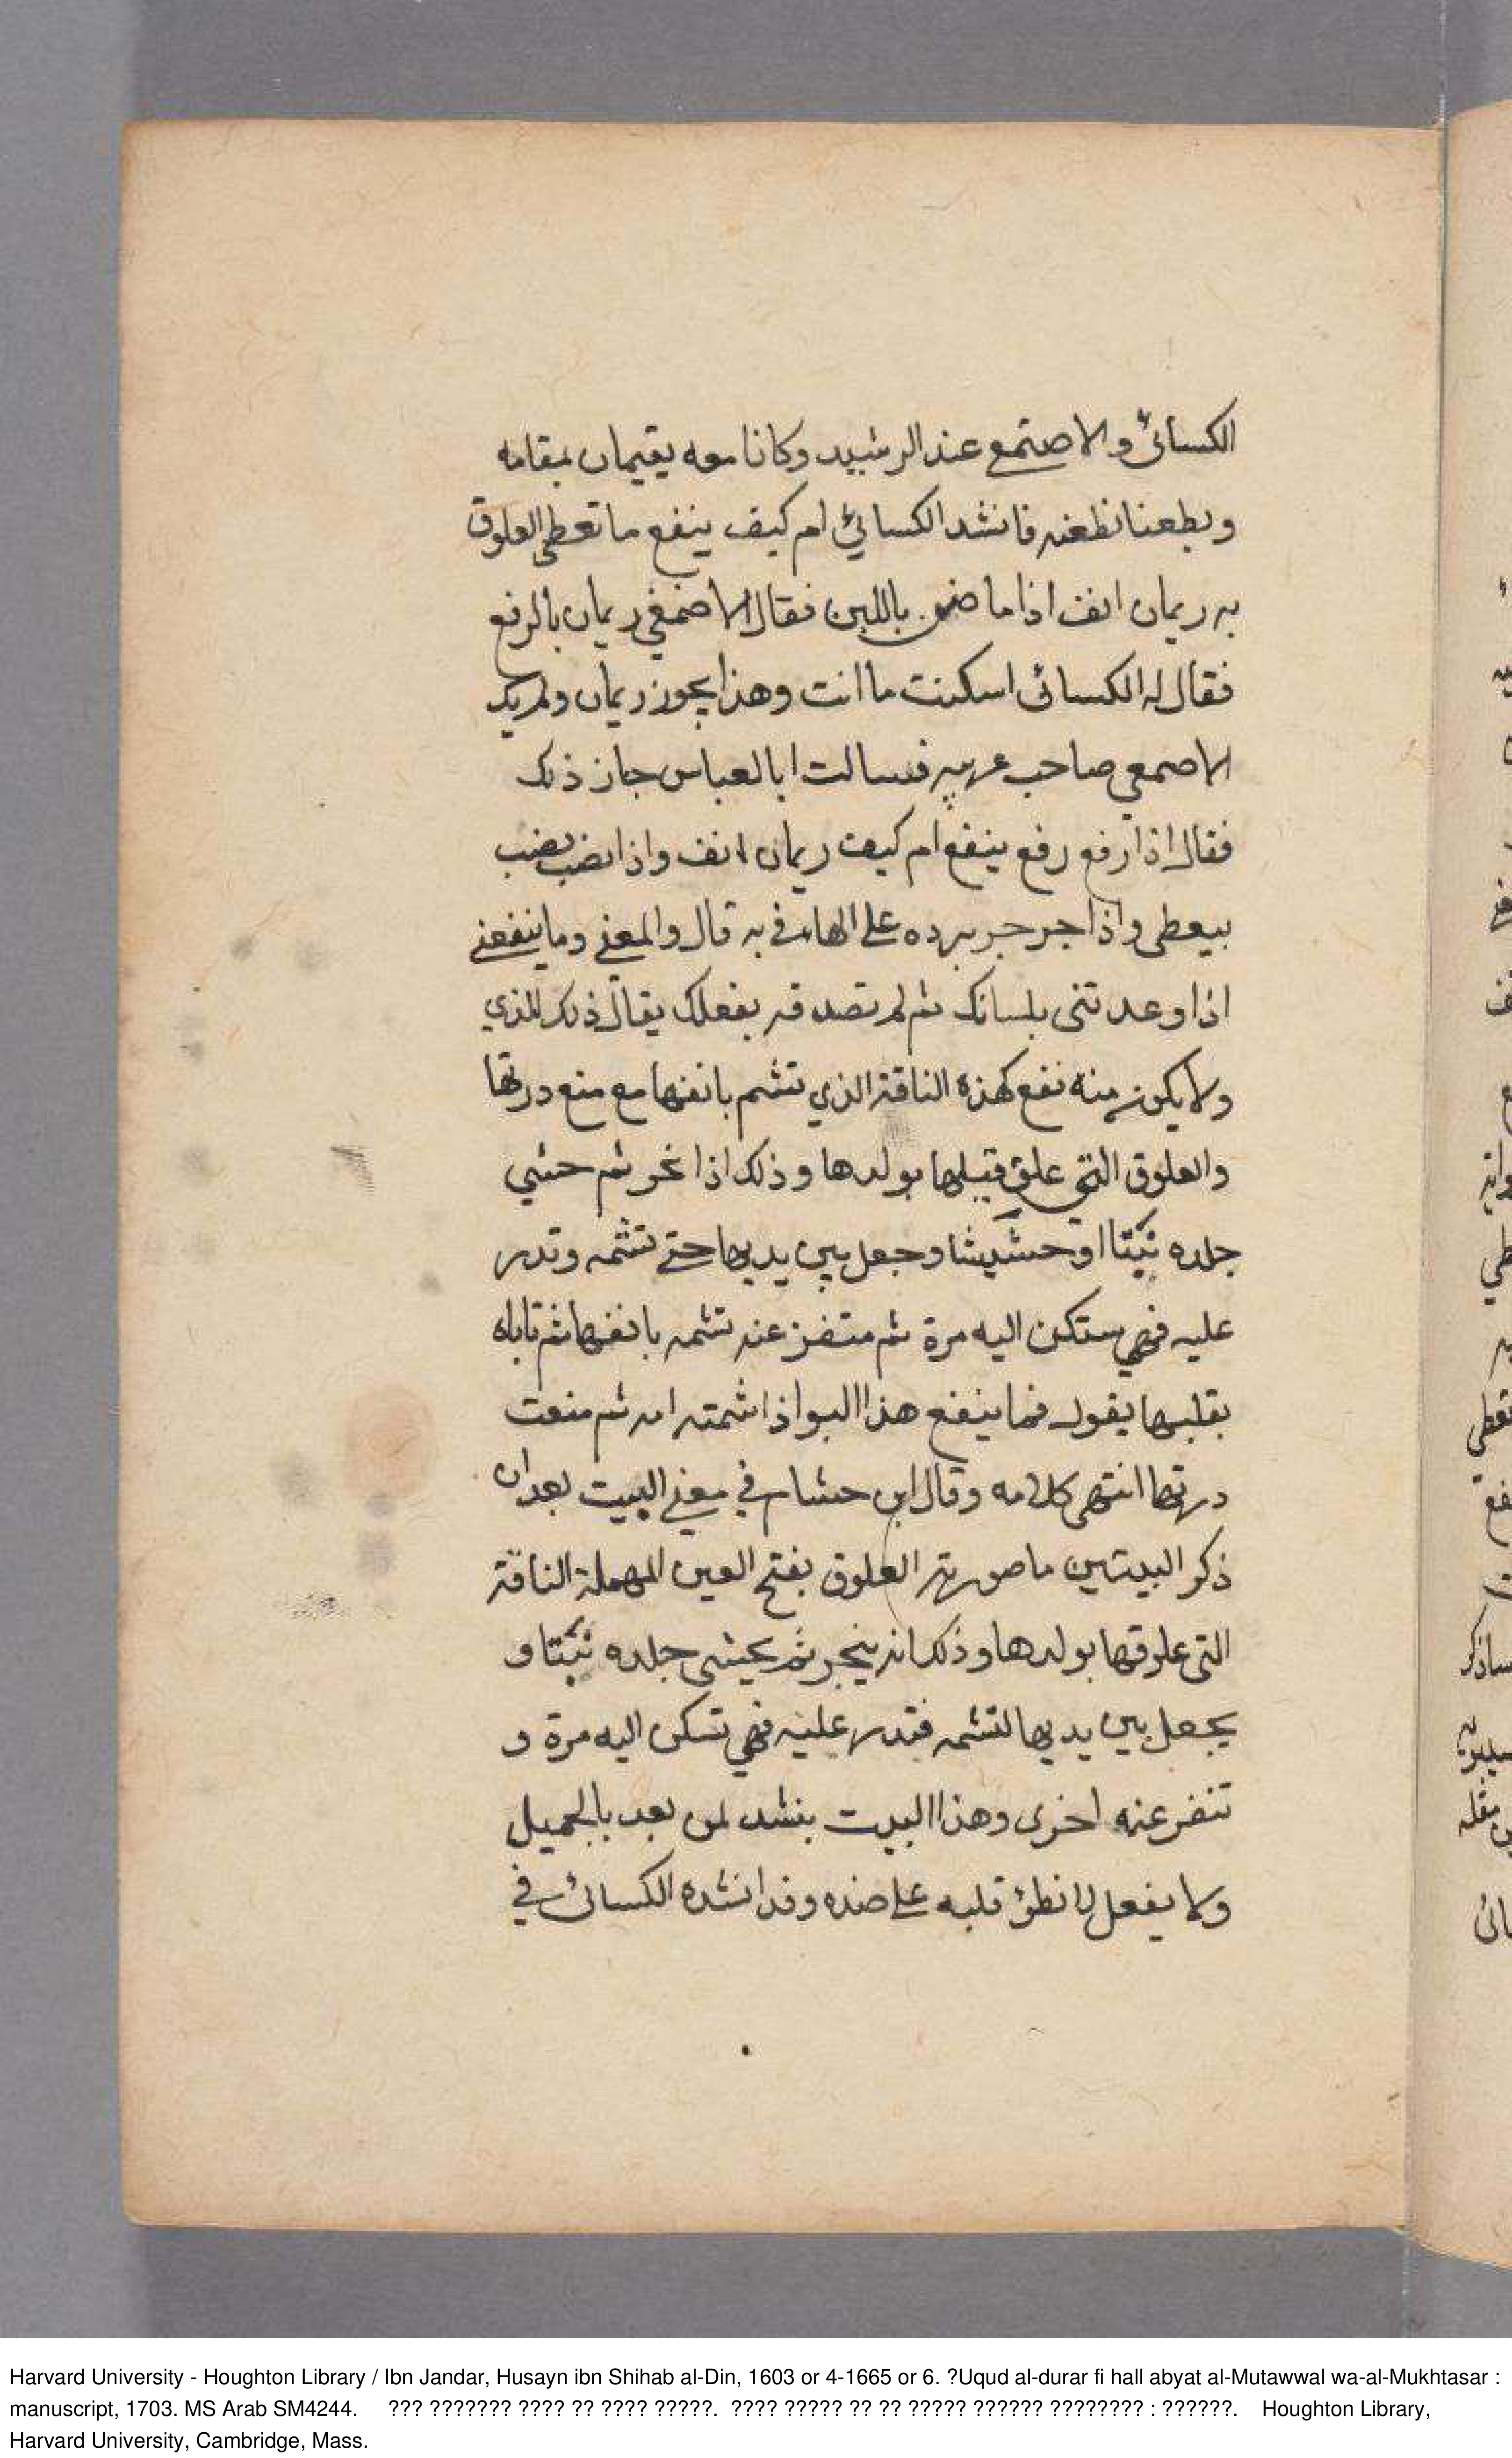 الكسائى والاصتمع عند الرشيد وكانا معه يقيمان بمقامه
ويطعنا نظعنه فانشد الكسائي ام كيف ينفع ما تعطي العلوق
به ريمان انف اذا ما ضن باللبن فقال الاضمغي ريمان بالرفع
فقال له الكسائى اسكت ما انت وهذا يجوز ريمان ولم يك
الاصمعي صاحب عربيه فسالت ابا لعباس جاز ذلك
فقال اذا رفع رفع ينفع ام كيف ريمان انف واذا نضب نضب
بيعطى واذا جر جر برده على الهاء في به قال والمعنى وما ينفعني
اذا وعدتنى بلسانك ثم لم تصدقه بفعلك يقال ذلك للذي
ولا يكون منه نفع كهذه الناقة الذي تشم بانفها مع منع درتها
والعلوق التي علق قبلها بولدها وذلك اذا نحر ثم حشي
جلده تبتا او حشيشا وجعل بين يديها حتى تشمه وتدر
عليه فهي ستكن اليه مرة ثم متفز عند تشمه بانفها ثم تاباه
بقلبها يقول فما ينفع هذا البو اذا شمته ثم منعت
درتها انتهى كلامه وقال ابن حشام في مغنى البيت بعد ان
ذكر البيتين ما صورته العلوق بفتح العين المهملة الناقة
التى علوقها بولدها وذلك انه ينجر ثم يحيشى جلده تبتا و
يجعل بين يديها لتشمه فتدر عليه فهي تسكن اليه مرة و
تنفر عنه اخرى وهذا البيت ينشد لمن يعد بالجميل
ولا يفعل لانطؤ قلبه على ضده وقد انشده الكسائى في
Harvard University - Houghton Library / Ibn Jandar, Husayn ibn Shihab al-Din, 1603 or 4-1665 or 6. ?Uqud al-durar fi hall abyat al-Mutawwal wa-al-Mukhtasar :
manuscript, 1703. MS Arab SM4244. ??? ??????? ???? ?? ???? ?????. ???? ????? ?? ?? ????? ?????? ???????? : ??????. Houghton Library,
Harvard University, Cambridge, Mass.